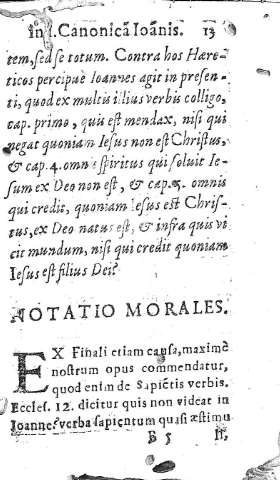 in I. Canonicã Ioãnis. 13
tem, sed se totum. Contra hos Hære-
ticos percipuè Ioannes agit in presen-
ti, quod ex multis illius verbis colligo,
cap. primo, quis est mendax, nisi qui
negat quoniam Iesus non est Christus,
& cap. 4. omnis spiritus qui soluit Ie-
sum ex Deo non est, & cap. 5. omnis
qui credit, quoniam Iesus est Chris-
tus, ex Deo natus est, & infra quis vi
cit mundum, nisi qui credit quoniam
Iesus est filius Dei?
NOTATIO MORALES.
EX Finali etiam causa, maximè
nostrum opus commendatur,
quod enim de Sapiẽtis verbis.
Eccles. 12. dicitur quis non videat in
Ioannes verba sapientum quasi æstimu
B 5 li,